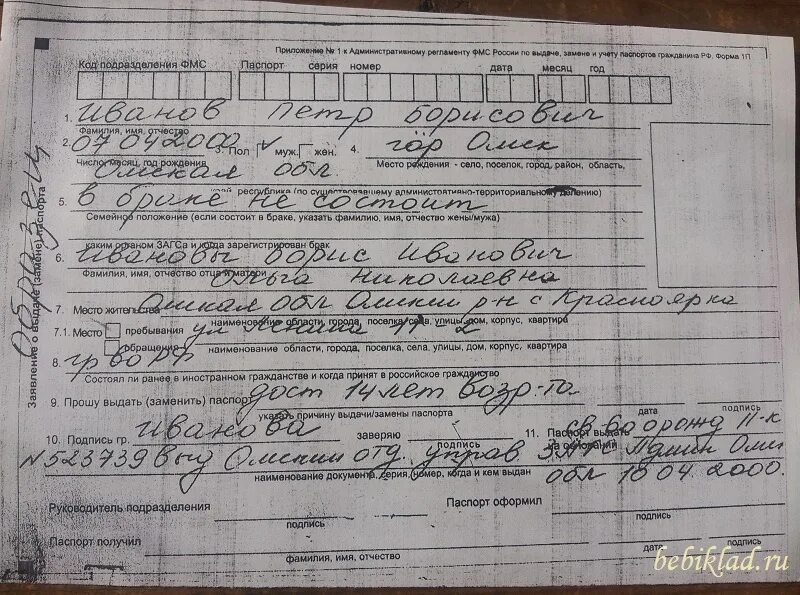 Приложение № 1 к Административному регламенту ФМС России по выдаче, замене и учету паспортов гражданина РФ. Форма 1П
Код подразделения ФМС Паспорт серия номер дата месяц год
1. Иванов Петр Борисович
Фамилия, имя, отчество
2. 07 04 2000 3. Пол муж. жен. 4. гор Омск
Число, месяц, год рождения Место рождения - село, поселок, город, район, область,
Омская обл
край, республика (по существующему административно-территориальному делению)
5. в браке не состоит
Семейное положение (если состоит в браке, указать фамилию, имя, отчество жены/мужа)
каким органом ЗАГСа и когда зарегистрирован брак
6. Ивановы Борис Иванович
Фамилия, имя, отчество отца и матери
Ольга Николаевна
7. Место жительства Омская обл Омский р-н с Красноярка
наименование области, города, поселка, села, улицы, дом, корпус, квартира
7.1. Место пребывания ул Ленина
обращения наименование области, города, поселка, села, улицы, дом, корпус, квартира
8. гр-во РФ
Состоял ли ранее в иностранном гражданстве и когда принят в российское гражданство
9. Прошу выдать (заменить) паспорт дост 14 лет возр-та
указать причину выдачи/замены паспорта дата подпись
10. Подпись гр. Иванова заверяю подпись 11. Паспорт выдать на основании св-во о рожд II-к
N 523739 выд Омским отд управ ЗАГС Админ Омс
наименование документа, серия, номер, когда и кем выдан обл 10 04 2000.
Руководитель подразделения подпись Паспорт оформил подпись
Паспорт получил фамилия, имя, отчество дата подпись
Заявление о выдаче (замене) паспорта
Образец
bebiklad.ru